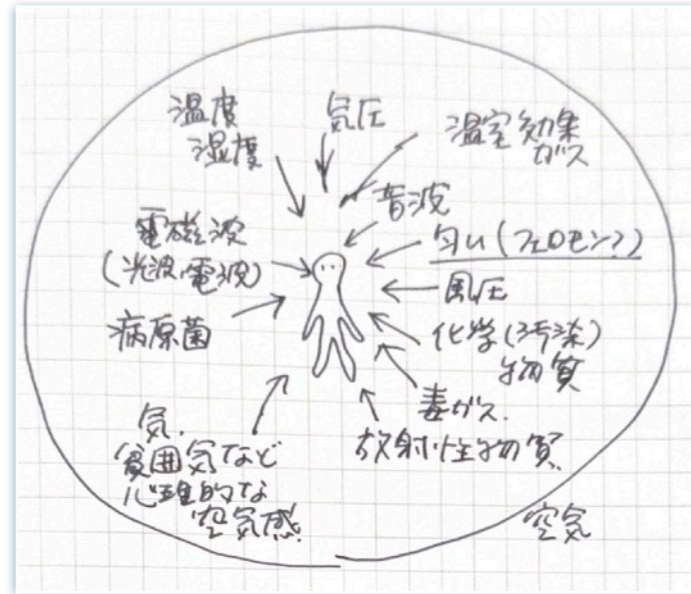 温度
湿度
気圧
温室効果
ガス
音波
電磁波
(光波、電波)
匂い(フェロモン?)
風圧
病原菌
化学(汚染)
物質
毒ガス.
放射性物質
気.
雰囲気など
心理的な
空気感
空気